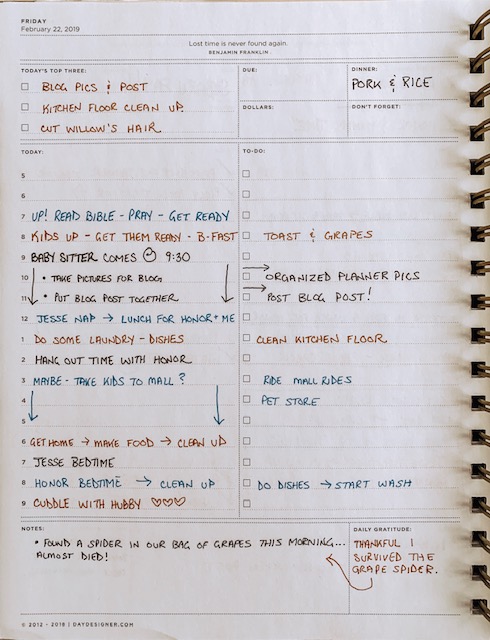 FRIDAY
February 22, 2019
Lost time is never found again.
BENJAMIN FRANKLIN
TODAY'S TOP THREE:
BLOG PICS & POST
KITCHEN FLOOR CLEAN UP
CUT WILLOW'S HAIR
DUE:
DINNER:
PORK & RICE
DOLLARS:
DON'T FORGET:
TODAY:
TO-DO:
5
6
7 UP! READ BIBLE - PRAY - GET READY
8 KIDS UP - GET THEM READY - B-FAST
TOAST & GRAPES
9 BABY SITTER COMES 9:30
10 • TAKE PICTURES FOR BLOG
→ ORGANIZED PLANNER PICS
11 • PUT BLOG POST TOGETHER
→ POST BLOG POST!
12 JESSE NAP → LUNCH FOR HONOR + ME
1 DO SOME LAUNDRY - DISHES
CLEAN KITCHEN FLOOR
2 HANG OUT TIME WITH HONOR
3 MAYBE - TAKE KIDS TO MALL?
RIDE MALL RIDES
4
PET STORE
5
6 GET HOME → MAKE FOOD → CLEAN UP
7 JESSE BEDTIME
8 HONOR BEDTIME → CLEAN UP
DO DISHES → START WASH
9 CUDDLE WITH HUBBY ♡♡♡
NOTES:
• FOUND A SPIDER IN OUR BAG OF GRAPES THIS MORNING...
ALMOST DIED!
DAILY GRATITUDE:
THANKFUL I
SURVIVED THE
GRAPE SPIDER.
© 2012 - 2018 | DAYDESIGNER.COM